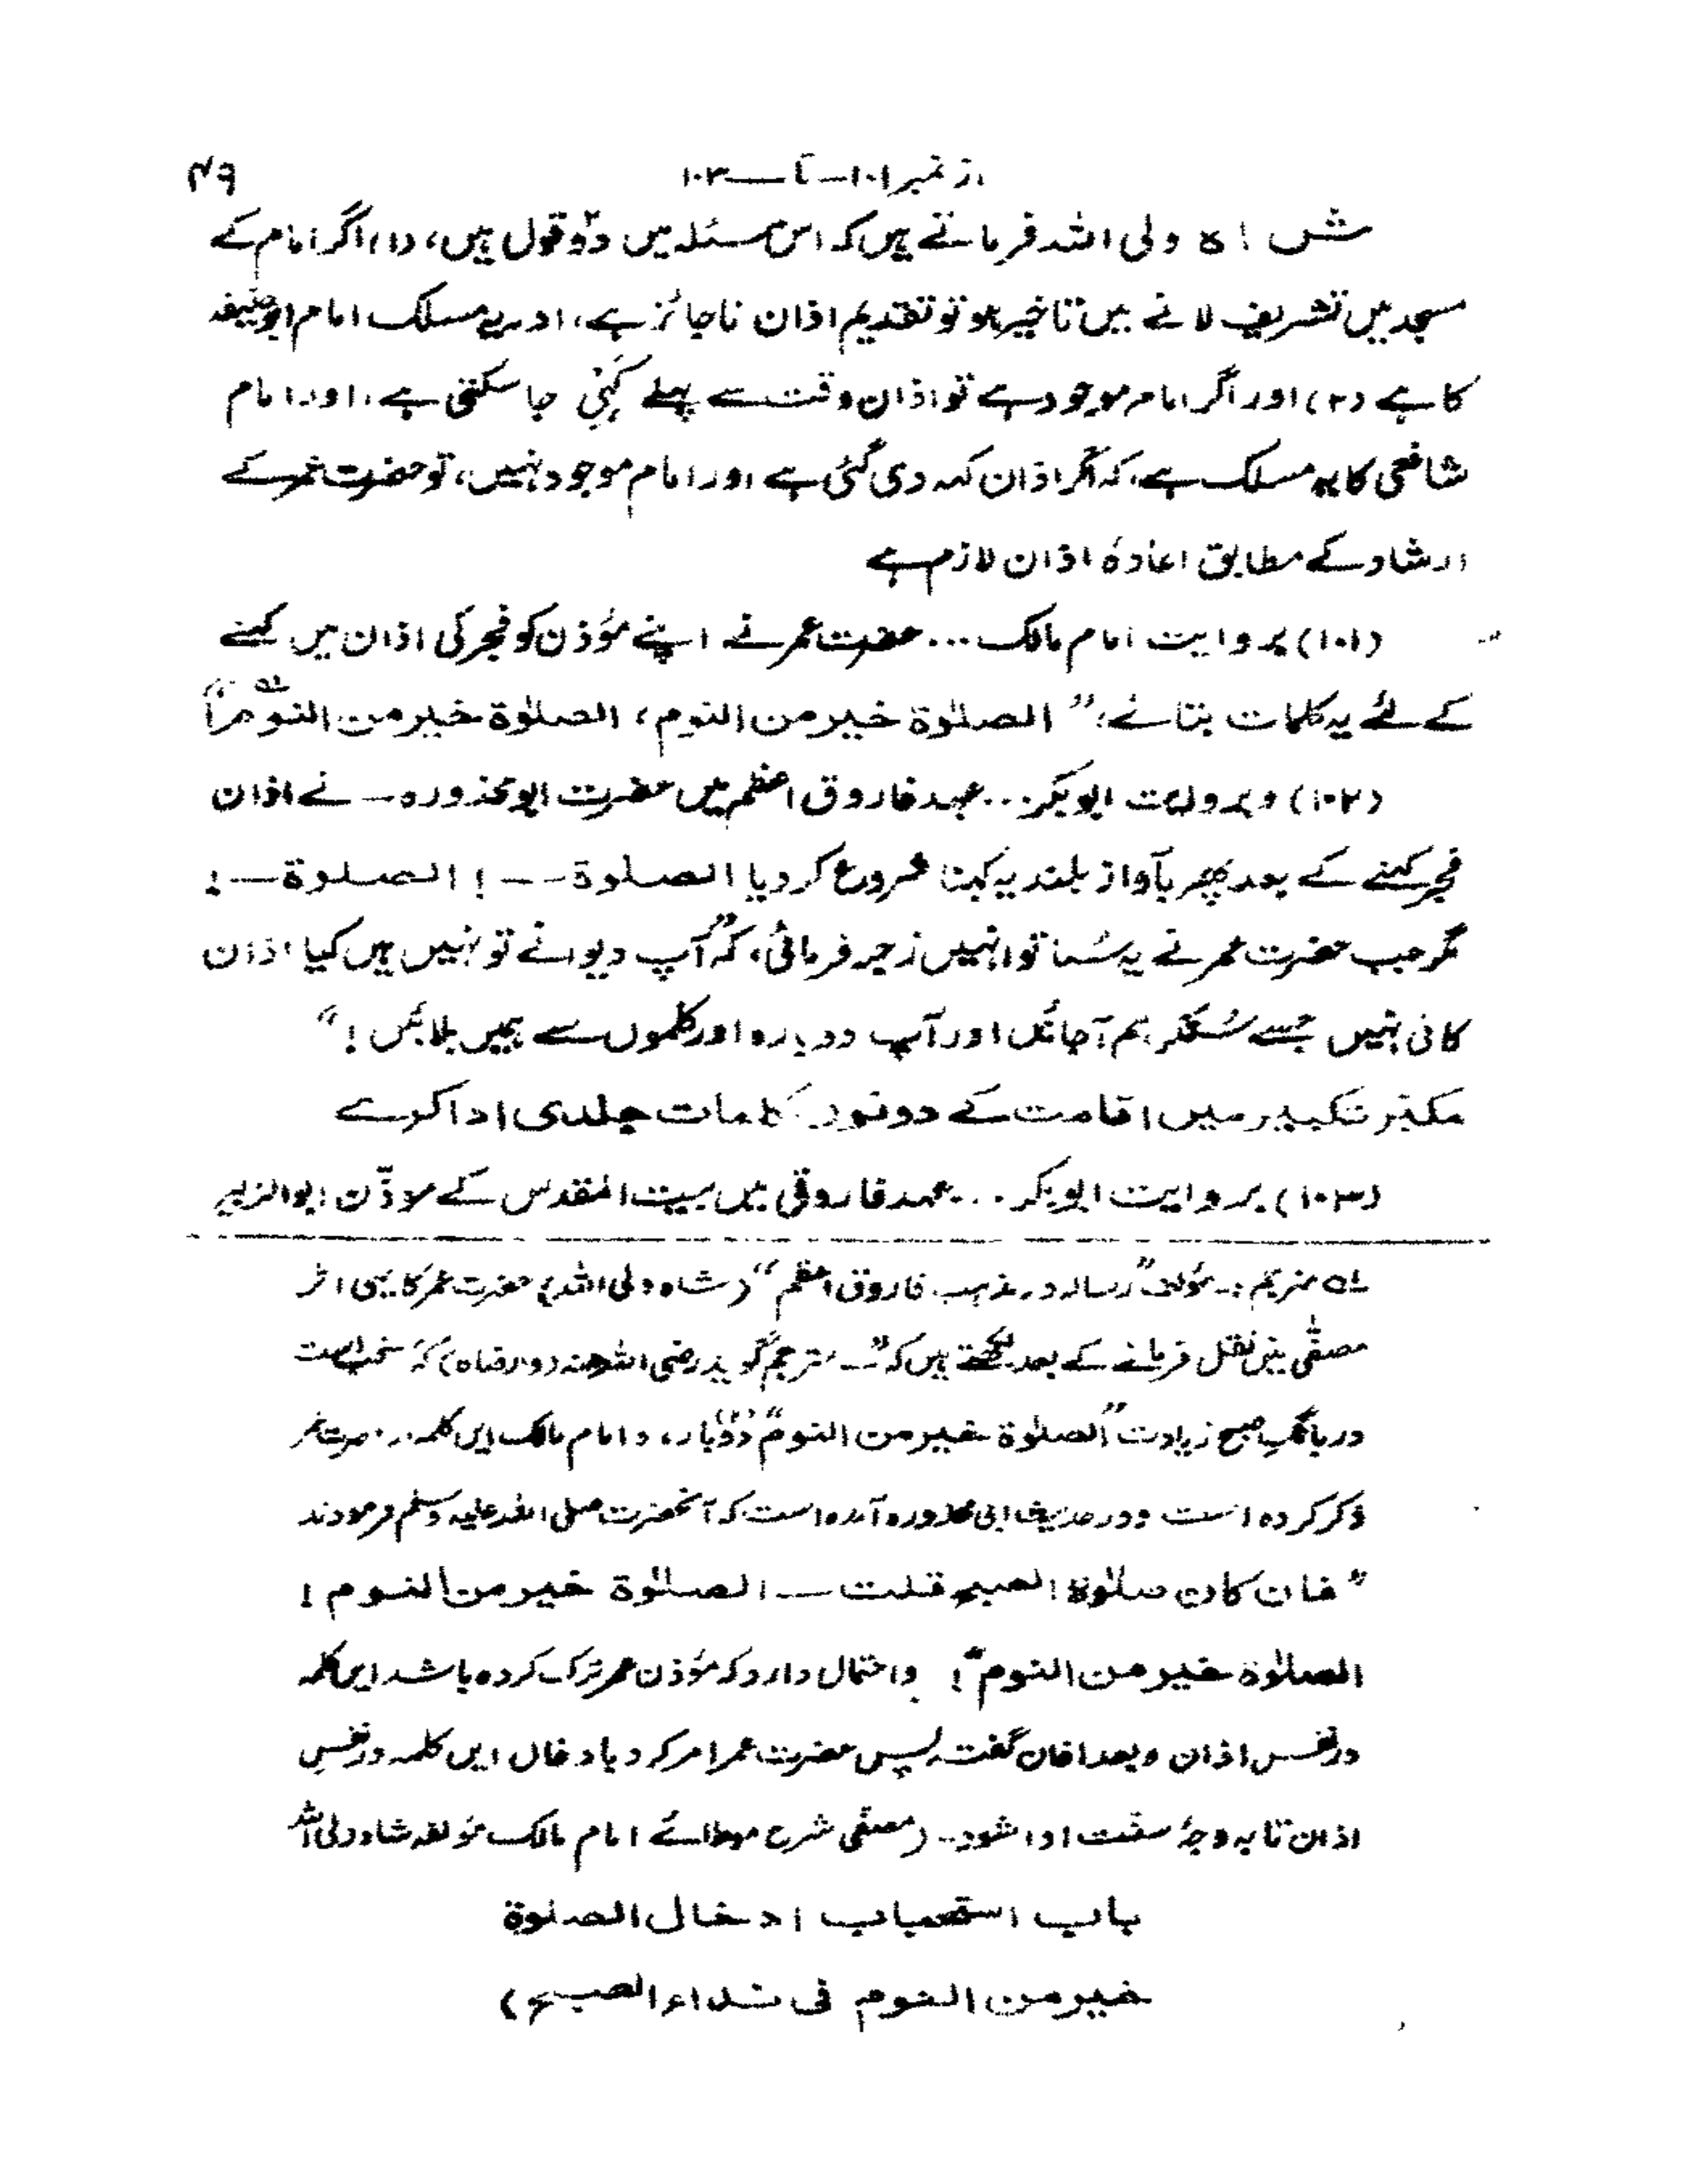 ۴۹
از نمبر ۱۰۱ — تا — ۱۰۳
شاہ ولی اللہ فرماتے ہیں کہ اس مسئلہ میں دو قول ہیں، (۱) اگر امام کے
مسجد میں تشریف لانے میں تاخیر ہو تو تقدیم اذان ناجائز ہے، اور یہ مسلک امام ابوحنیفہ
کا ہے (۲) اور اگر امام موجود ہے تو اذان وقت سے پہلے کہی جا سکتی ہے، اور امام
شافعی کا یہ مسلک ہے، کہ اگر اذان کہہ دی گئی ہے اور امام موجود نہیں، تو حضرت عمر کے
ارشاد کے مطابق اعادۂ اذان لازم ہے
(۱۰۱) بروایت امام مالک ... حضرت عمر نے اپنے مؤذن کو فجر کی اذان میں کہنے
کے لئے یہ کلمات بتائے، ”الصلوٰۃ خیر من النوم، الصلوٰۃ خیر من النوم“
(۱۰۲) و بروایت ابوبکر ... عہد فاروق اعظم میں حضرت ابو محذورہ — نے اذان
فجر کہنے کے بعد پھر بآواز بلند یہ کہنا شروع کر دیا الصلوۃ -- ! الصلوۃ — !
مگر جب حضرت عمر نے یہ سُنا تو انہیں زجر فرمائی، کہ ”آپ دیوانے تو نہیں ہیں کیا اذان
کافی نہیں جسے سُنکر ہم آجائیں اور آپ دوبارہ اور کلموں سے ہمیں بلائیں !“
مکبّر تکبیر میں اقامت کے دونوں کلمات جلدی ادا کرے
(۱۰۳) بروایت ابوبکر ... عہد فاروقی میں بیت المقدس کے موذّن ابوالزبیر
لہ مترجم :۔ مؤلف ”رسالہ در مذہب فاروق اعظم“ (شاہ ولی اللہ) حضرت عمر کا یہی اثر
مصفّٰی میں نقل فرمانے کے بعد لکھتے ہیں کہ ”— مترجم گوید رضی اللہ عنہ (وارضاہ) کہ مستحب است
در بانگ صبح زیادت ”الصلوٰۃ خیر من النوم“ دو بار، و امام مالک ایں کلمہ از حضرت عمر
ذکر کردہ است و در حدیث ابی محذورہ آمدہ است کہ آنحضرت صلی اللہ علیہ وسلم فرمودند
”فان کان صلوٰۃ الصبح قلت — الصلوٰۃ خیر من النوم !
الصلوٰۃ خیر من النوم“ ! و احتمال دارد کہ مؤذن عمر ترک کردہ باشد ایں کلمہ
در نفس اذان و بعد اذان گفت پس حضرت عمر امر کرد بادخال ایں کلمہ در نفس
اذان تا بہ وجہ سنّت ادا شود۔ (مصفّٰی شرح موطائے امام مالک مؤلفہ شاہ ولی اللہ
باب استحباب ادخال الصلوۃ
خیر من النوم فی نداء الصبح)